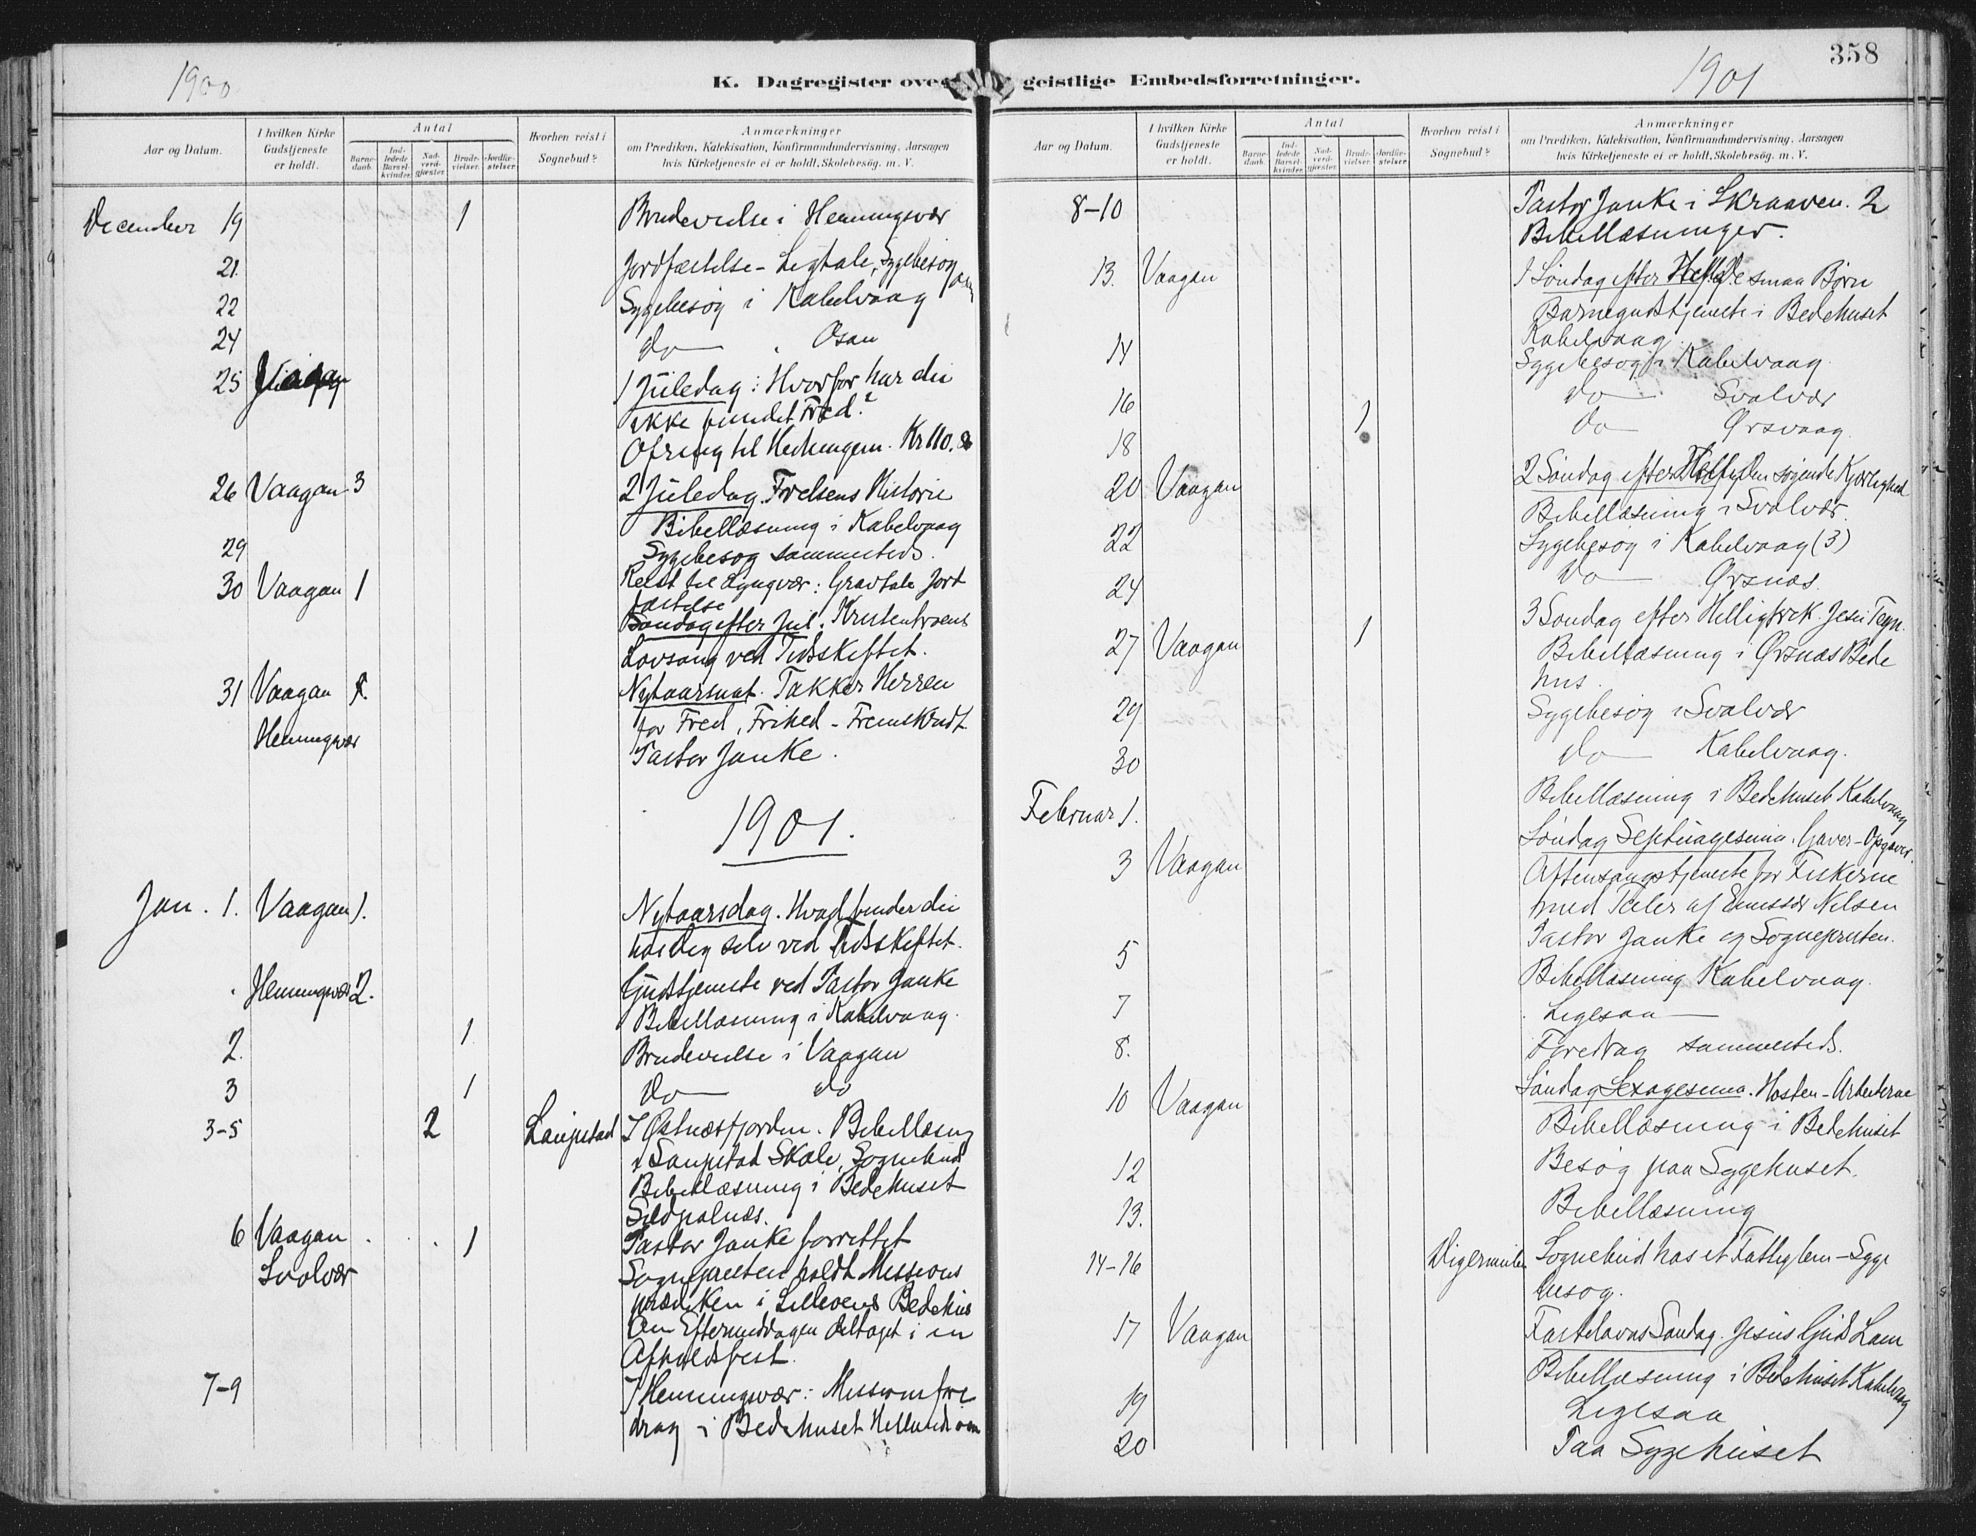 1900
K. Dagregister over geistlige Embedsforretninger.
1901
358
Aar og Datum.
I hvilken Kirke Gudstjeneste er holdt.
Antal
Barne-daab.
Ind-ledede Barsel-kvinder.
Nad-verd-gjæster.
Brude-vielser.
Jordfæ-stelser.
Hvorhen reist i Sognebud?
Anmærkninger
om Prædiken, Katekisation, Konfirmandundervisning, Aarsagen
hvis Kirketjeneste ei er holdt, Skolebesøg. m. V.
December 19 1 Brudevielse i Henningsvær
21. Jordfæstelse - Ligtale, Sygebesøg
22 Sygebesøg i Kabelvaag
24 do Osan
25 Vaagan 1 Juledag: Hvorfor har du
ikke fundet Fred?
Ofring til Hedningem. Kr 110.
26 Vaagan 3 2 Juledag. Frelsens Historie
Bibellæsning i Kabelvaag
29 Sygebesøg sammesteds.
30 Vaagan 1 Reist til Lyngvær: Gravtale Jord
fæstelse
Søndag efter Jul.
Lovsang ved Tidsskiftet.
31 Vaagan Nytaarsnat. Takker Herren
for Fred, Frihed - Fremskridt
Henningsvær Pastor Janke.
1901.
Jan. 1. Vaagan 1. Nytaarsdag. Hvad finder du
hos dig selv ved Tidsskiftet.
Henningsvær 2. Gudstjeneste ved Pastor Janke
Bibellæsning i Kabelvaag.
2. 1 Brudevielse i Vaagan
3 1 do do
3-5 2 Laupstad I Østnesfjorden. Bibellæsng
i Laupstad Skole, Sognebud
Bibellæsning i Bedehuset
Sildpolnes.
6 Vaagan 1 Pastor Janke forrettet
Svolvær Sognepresten holdt Missions
prædiken i Bedehus
Om Eftermiddagen deltaget i en
Afholdsfest.
7-9 I Henningsvær: Missionsfore
drag i Bedehuset
Aar og Datum.
I hvilken Kirke Gudstjeneste er holdt.
Antal
Barne-daab.
Ind-ledede Barsel-kvinder.
Nad-verd-gjæster.
Brude-vielser.
Jordfæ-stelser.
Hvorhen reist i Sognebud?
Anmærkninger
om Prædiken, Katekisation, Konfirmandundervisning, Aarsagen
hvis Kirketjeneste ei er holdt, Skolebesøg. m. V.
8-10 Pastor Janke i Skraaven. 2
Bibellæsninger.
13. Vaagan 1 Søndag efter De smaa Børn
Barnegudstjeneste i Bedehuset
Kabelvaag
14 Sygebesøg i Kabelvaag.
16 1 do Svolvær
18 do Ørsvaag.
20 Vaagan 2 Søndag efter Den søgende Kjærlighed
Bibellæsning i Svolvær.
22 Sygebesøg i Kabelvaag (3)
24 do Ørsnæs.
27 Vaagan 1 3 Søndag efter Helligtrek. Jesu Tegn.
Bibellæsning i Ørsnæs Bede
hus.
29 Sygebesøg i Svolvær
30 do Kabelvaag.
Februar 1. Bibellæsning i Bedehuset Kabelvaag
3 Vaagan Søndag Septuagesima. Gaver - Opgaver.
Aftensangstjeneste for Fiskerne
med Taler af Emissær Nilsen
Pastor Janke og Sognepresten.
5 Bibellæsning Kabelvaag.
7 Ligesaa
8. Foredrag sammesteds.
10 Vaagan Søndag Sexagesima. Høsten - Arbeiderne
Bibellæsning i Bedehuset
12 Besøg paa Sygehuset.
13. Bibellæsning
14-16 Digermulen Sognebud hos et Fattiglem - Syge
besøg.
17 Vaagan Fastelavns Søndag. Jesus Guds Lam
Bibellæsning i Bedehuset Kabelvaag
19 Ligesaa
20 Paa Sygehuset